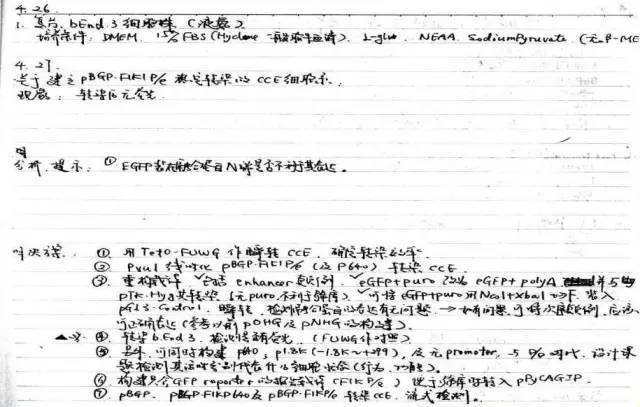 4.26
1. 复苏 bEnd.3 细胞株 (液氮)
培养条件: DMEM, 15% FBS (Hyclone), L-glu, NEAA, Sodium Pyruvate (无 β-ME
4.27.
关于建立 pBGP-FlK1P/e 稳定转染的 CCE 细胞系,
现象: 转染后无荧光
分析, 提示: ① EGFP 在融合蛋白 N 端是否不利于其表达.
解决方案: ① 用 TetO-FUWG 作瞬转 CCE, 确定转染效率
② PvuI 线性化 pBGP-FlK1P/e (及 P640) 转染 CCE
③ 重构载体 ✓包括 enhancer ✓eGFP+puro 改为 eGFP+polyA 并与
pTK-Hyg 共转染 (无 puro, 不利于筛选) ✓可将 eGFP+puro 用 NcoI+XbaI 切下, 装入
pGL3-Control, 瞬转, 检测融合蛋白的表达有无问题 → 如有问题,
可正确表达 (参考以前 pOHG 及 pNHG 的构建)
④ 转染 bEnd.3, 检测有无荧光 (FUWG 作对照)
⑤ 另外, 可同时构建 p640, p1.8K (-1.8K~+299), 及无 promoter, 与 P/e 对比, 设计实
验检测其
⑥ 构建只含 GFP reporter 的报告载体 (FlK1P/e) 便于筛选时转入 pPyCAGIP
⑦ pBGP, pBGP-FlKP640 及 pBGP-FlKP/e 转染 CCE, 流式检测.